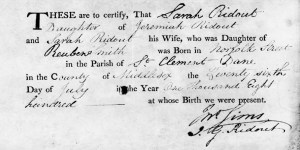 THESE are to certify, That Sarah Ridout
Daughter of Jeremiah Ridout
and Sarah Ridout his Wife, who was Daughter of
Reuben Smith was Born in Norfolk Street
in the Parish of St Clement Dane
in the County of Middlesex the Twenty sixth
Day of July in the Year One thousand Eight
hundred at whose Birth we were present.
Ridout